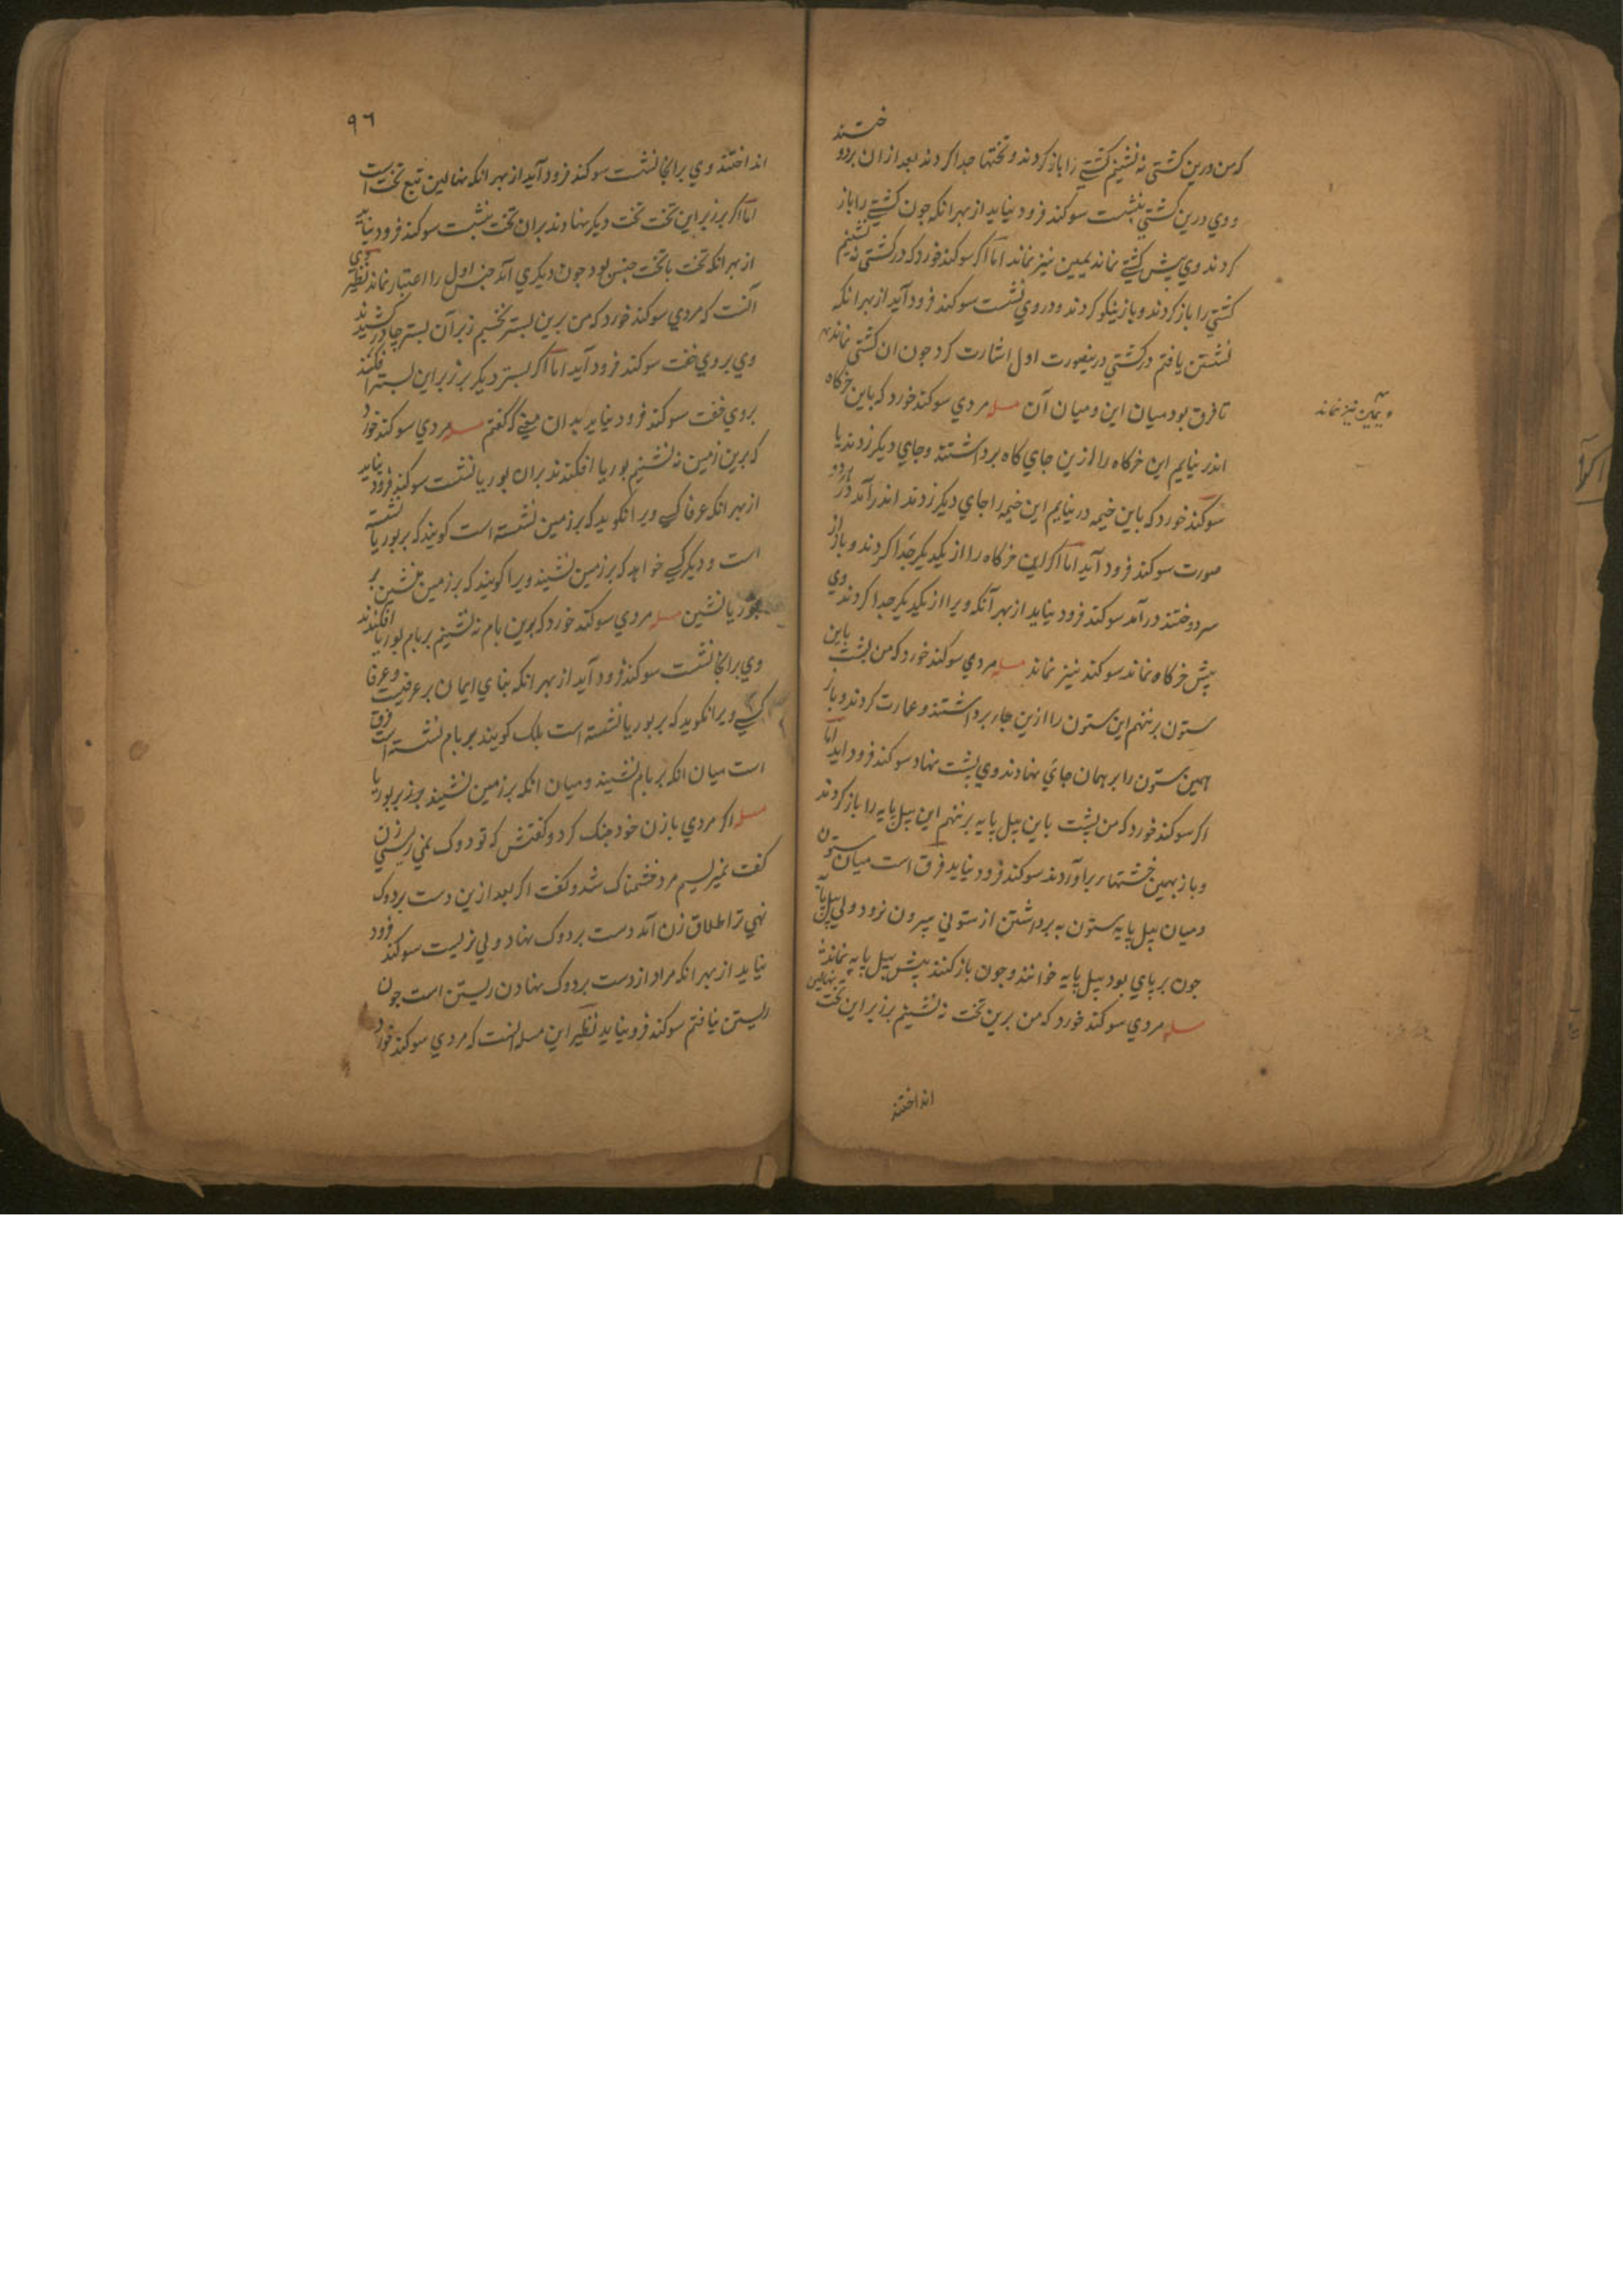 که من درین کشتی نه نشینم کشتی را باز کردند و تختها جدا کردند بعد از ان بردو ختند
و وي درین کشتي بنشست سوکند فرود نیاید از بهر انکه جون کشتي را باز
کردند وي بیش کشتي نماند یمین نیز نماند اما اکر سوکند خورد که در کشتي نه نشینم
کشتي را باز کردند و باز نیکو کردند و در وي نشست سوکند فرود آید از بهر انکه
نشستن یافتم در کشتي درینصورت اول اشارت کرد جون ان کشتي نماند
تا فرق بود میان این و میان آن مسله مردي سوکند خورد که باین خرکاه
اندر نیایم این خرکاه را ازین جاي کاه برداشتند و جاي دیکر زدند یا
سوکند خورد که باین خیمه در نیایم این خیمه را جاي دیکر زدند اندر آمد در هر دو
صورت سوکند فرود آید اما اکر این خرکاه را از یکدیکر جدا کردند و باز از
سر دوختند در آمد سوکند فرود نیاید از بهر آنکه ویرا از یکدیکر جدا کردند وي
بیش خرکاه نماند سوکند نیز نماند مسله مردي سوکند خورد که من بشت باین
ستون بر ننهم این ستون را ازین جاء برداشتند و عمارت کردند و باز
همین ستون را بر همان جاي نهادند وي بشت نهاد سوکند فرود اید اما
اکر سوکند خورد که من بشت باین بیل بایه بر ننهم این بیل بایه را باز کردند
و باز بهمین خشتهاء برآوردند سوکند فرود نیاید فرق است میان ستون
و میان بیل بایه ستون به برداشتن از ستوني بیرون نرود ولي بیل بایه
جون بر باي بود بیل بایه خوانند و جون باز کنند بیش بیل بایه نماند
مسله مردي سوکند خورد که من برین تخت نه نشینم بر زبر این تخت نهالین
انداختند
و یمین نیز نماند
٩٦
انداختند وي بر انجا نشست سوکند فرود آید از بهر انکه نهالین تبع تخت است
اما اکر بر زبر این تخت تخت دیکر نهادند بران تخت نشست سوکند فرود نیاید
از بهر انکه تخت با تخت جنس بود جون دیکري آمد جنس اول را اعتبار نماند نظیر وي
آنست که مردي سوکند خورد که من برین بستر نخسبم زبر آن بستر جادر کشیدند
وي بروي خفت سوکند فرود آید اما اکر بستر دیکر بر زبر این بستر افکنند
بروي خفت سوکند فرود نیاید بدان معني که کفتم مسله مردي سوکند خورد
که برین زمین نه نشینم بوریا افکندند بران بوریا نشست سوکند فرود نیاید
از بهر انکه عرفا کسي ویرا نکوید که بر زمین نشسته است کویند که بر بوریا نشسته
است و دیکر کسي خواهد که بر زمین نشیند ویرا کویند که بر زمین منشین بر
بوریا نشین مسله مردي سوکند خورد که برین بام نه نشینم بر بام بوریا افکندند
وي بر انجا نشست سوکند فرود آید از بهر انکه بناي ایمان بر عرفیت و عرفا
کسي ویرا نکوید که بر بوریا نشسته است بلک کویند بر بام نشسته است فرق
است میان انکه بر بام نشیند و میان انکه بر زمین نشیند جز بر بوریا
مسله اکر مردي با زن خود جنک کرد و کفتش که تو دوک نمي ریسي زن
کفت نمیریسم مرد خشمناک شد و کفت اکر بعد ازین دست بر دوک
نهي ترا طلاق زن آمد دست بر دوک نهاد ولي نریست سوکند فرود
نیاید از بهر انکه مراد از دست بر دوک نهادن ریستن است جون
ریستن نیافتم سوکند فرو نیاید نظیر این مسله انست که مردي سوکند خورد